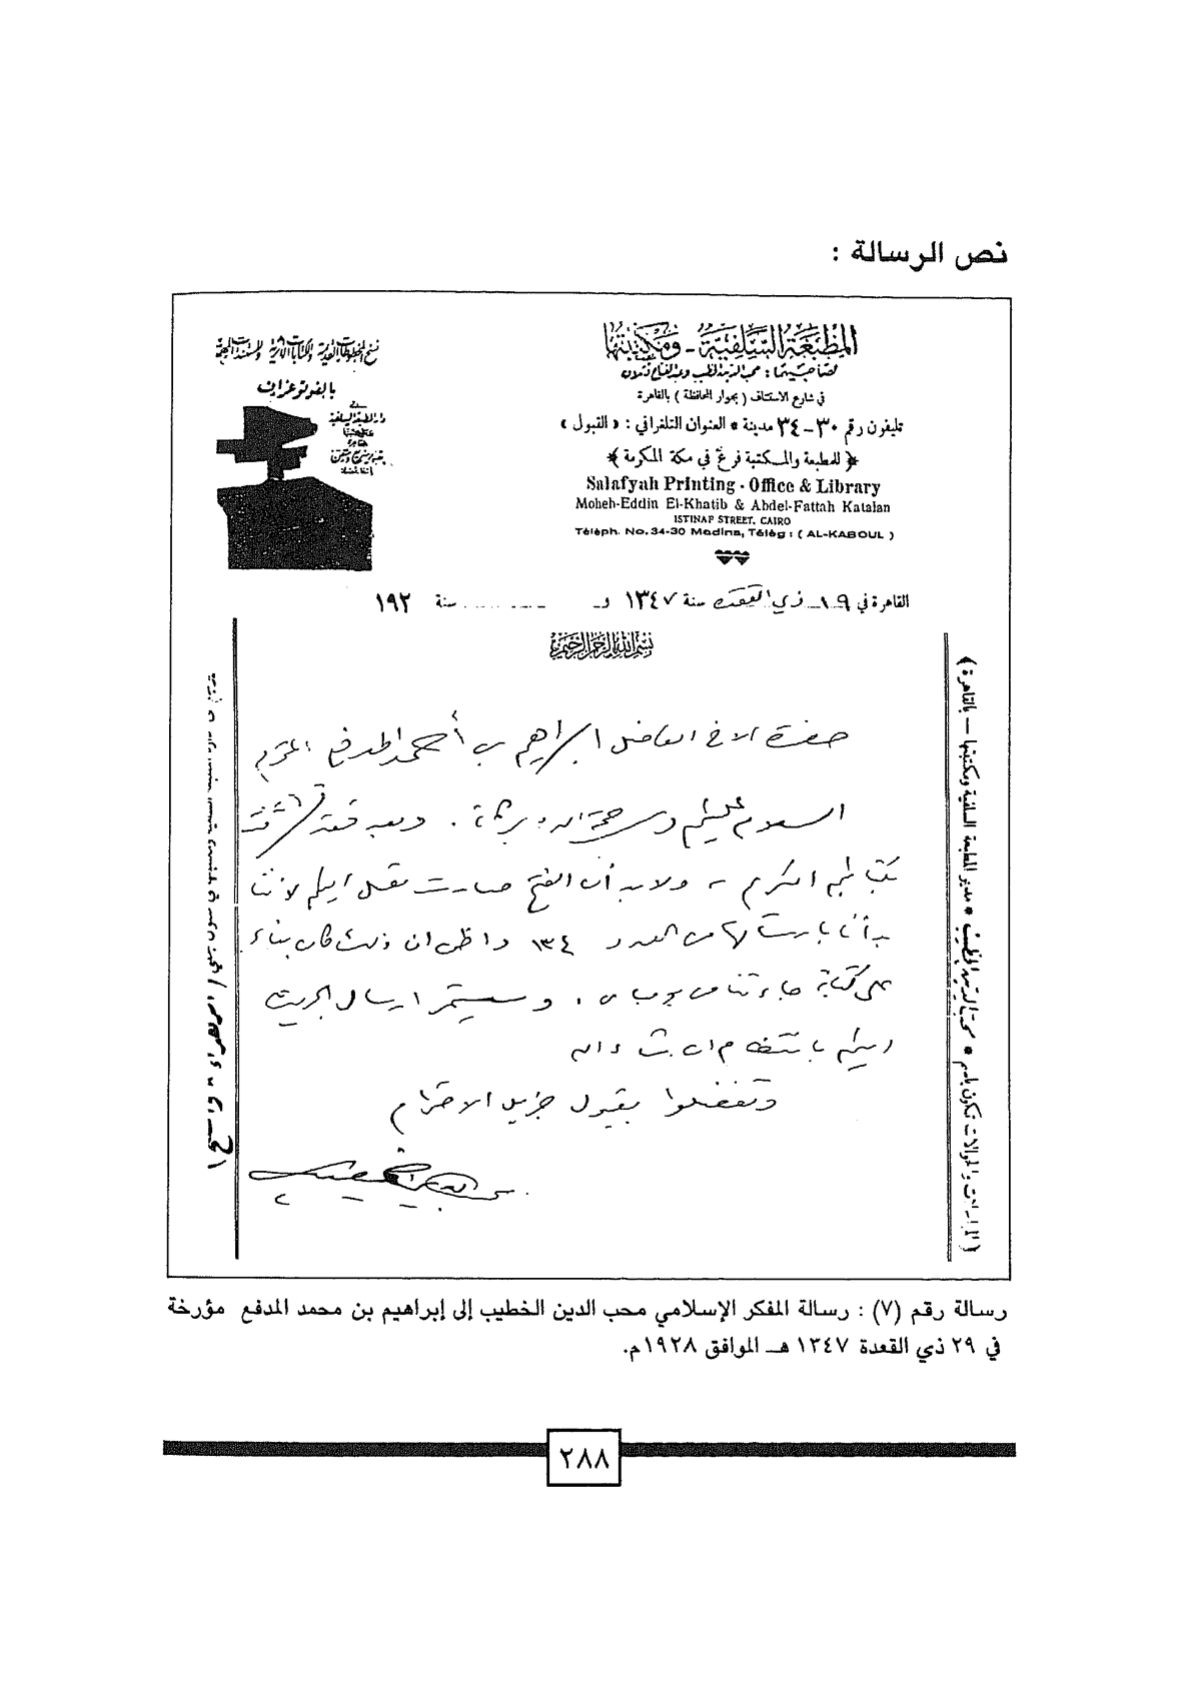 نص الرسالة :
المطبعة السلفية - ومكتبتها
لصاحبيهما : محب الدين الخطيب وعبد الفتاح قتلان
في شارع الاستئناف ( بجوار المحافظة ) بالقاهرة
تليفون رقم ٣٠-٣٤ مدينة • العنوان التلغرافي : « القبول »
﴿ للمطبعة والمكتبة فرع في مكة المكرمة ﴾
Salafyah Printing - Office & Library
Moheh-Eddin El-Khatib & Abdel-Fattah Katalan
ISTINAF STREET. CAIRO
Téléph. No. 34-30 Madina, Télég : ( AL-KABOUL )
بالفوتوغراف
القاهرة في ١٩ ذي القعدة سنة ١٣٤٧ و ... سنة ١٩٢
بسم الله الرحمن الرحيم
حضرة الاخ الفاضل ابراهيم بن أحمد المدفع المحترم
السلام عليكم ورحمة الله وبركاته . وبعد فقد تشرفت
بكتابكم الكريم - ولابد أن الفتح صارت تصل اليكم لأننا
بدأنا بارسالها من العدد ١٣٤ واظن ان ذلك كان بناء
على كتابة جاءتنا من . وسيستمر ارسال الجريدة
اليكم بانتظام ان شاء الله
وتفضلوا بقبول جزيل الاحترام
محب الدين الخطيب
( المراسلات والحوالات تكون باسم • محب الدين الخطيب • مدير المطبعة السلفية ومكتبتها — بالقاهرة )
رسالة رقم (٧) : رسالة المفكر الإسلامي محب الدين الخطيب إلى إبراهيم بن محمد المدفع مؤرخة
في ٢٩ ذي القعدة ١٣٤٧ هـ الموافق ١٩٢٨م.
٢٨٨